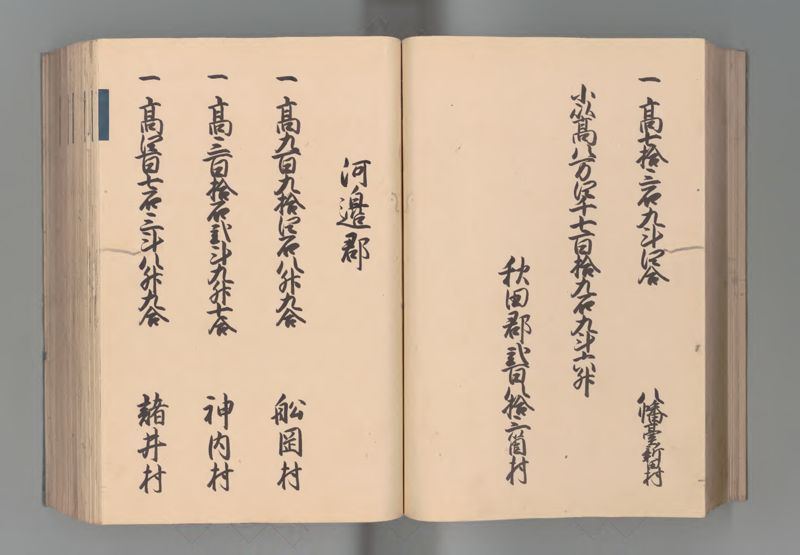 一高七拾三石九斗四合 八幡臺新田村
小以高八万四千七百拾九石九斗六升
秋田郡貳百八拾三箇村
河邉郡
一高九百九拾四石八升九合 舩岡村
一高三百拾石貳斗九升七合 神内村
一高四百七石三斗八升九合 赭井村